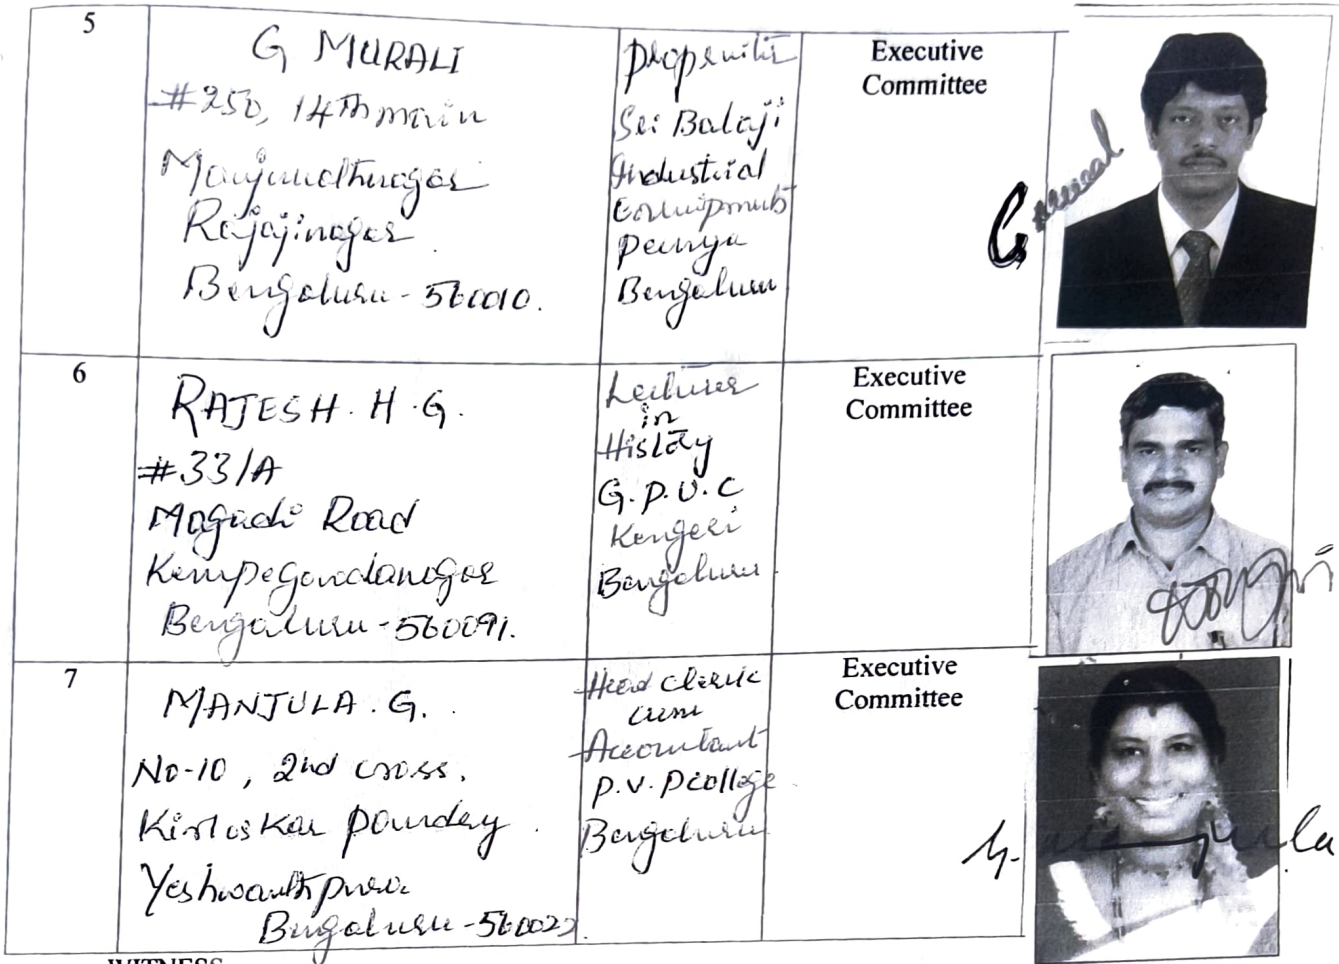 5
G MURALI
#250, 14th main
Manjunathnagar
Rajajinagar
Bengaluru - 560010.
Sri Balaji
Industrial
Equipments
Peenya
Bengaluru
Executive
Committee
G
6
RAJESH. H. G.
#33/A
Magadi Road
Kempegowdanagar
Bengaluru - 560091.
Lecturer
in
History
G. P. U. C
Kengeri
Bengaluru.
Executive
Committee
7
MANJULA. G.
No-10, 2nd cross.
Kirloskar Foundry
Yeshwanthpura
Bengaluru - 560022
Head clerk
cum
Accountant
P. V. P College
Bengaluru
Executive
Committee
G. Manjula
WITNESS